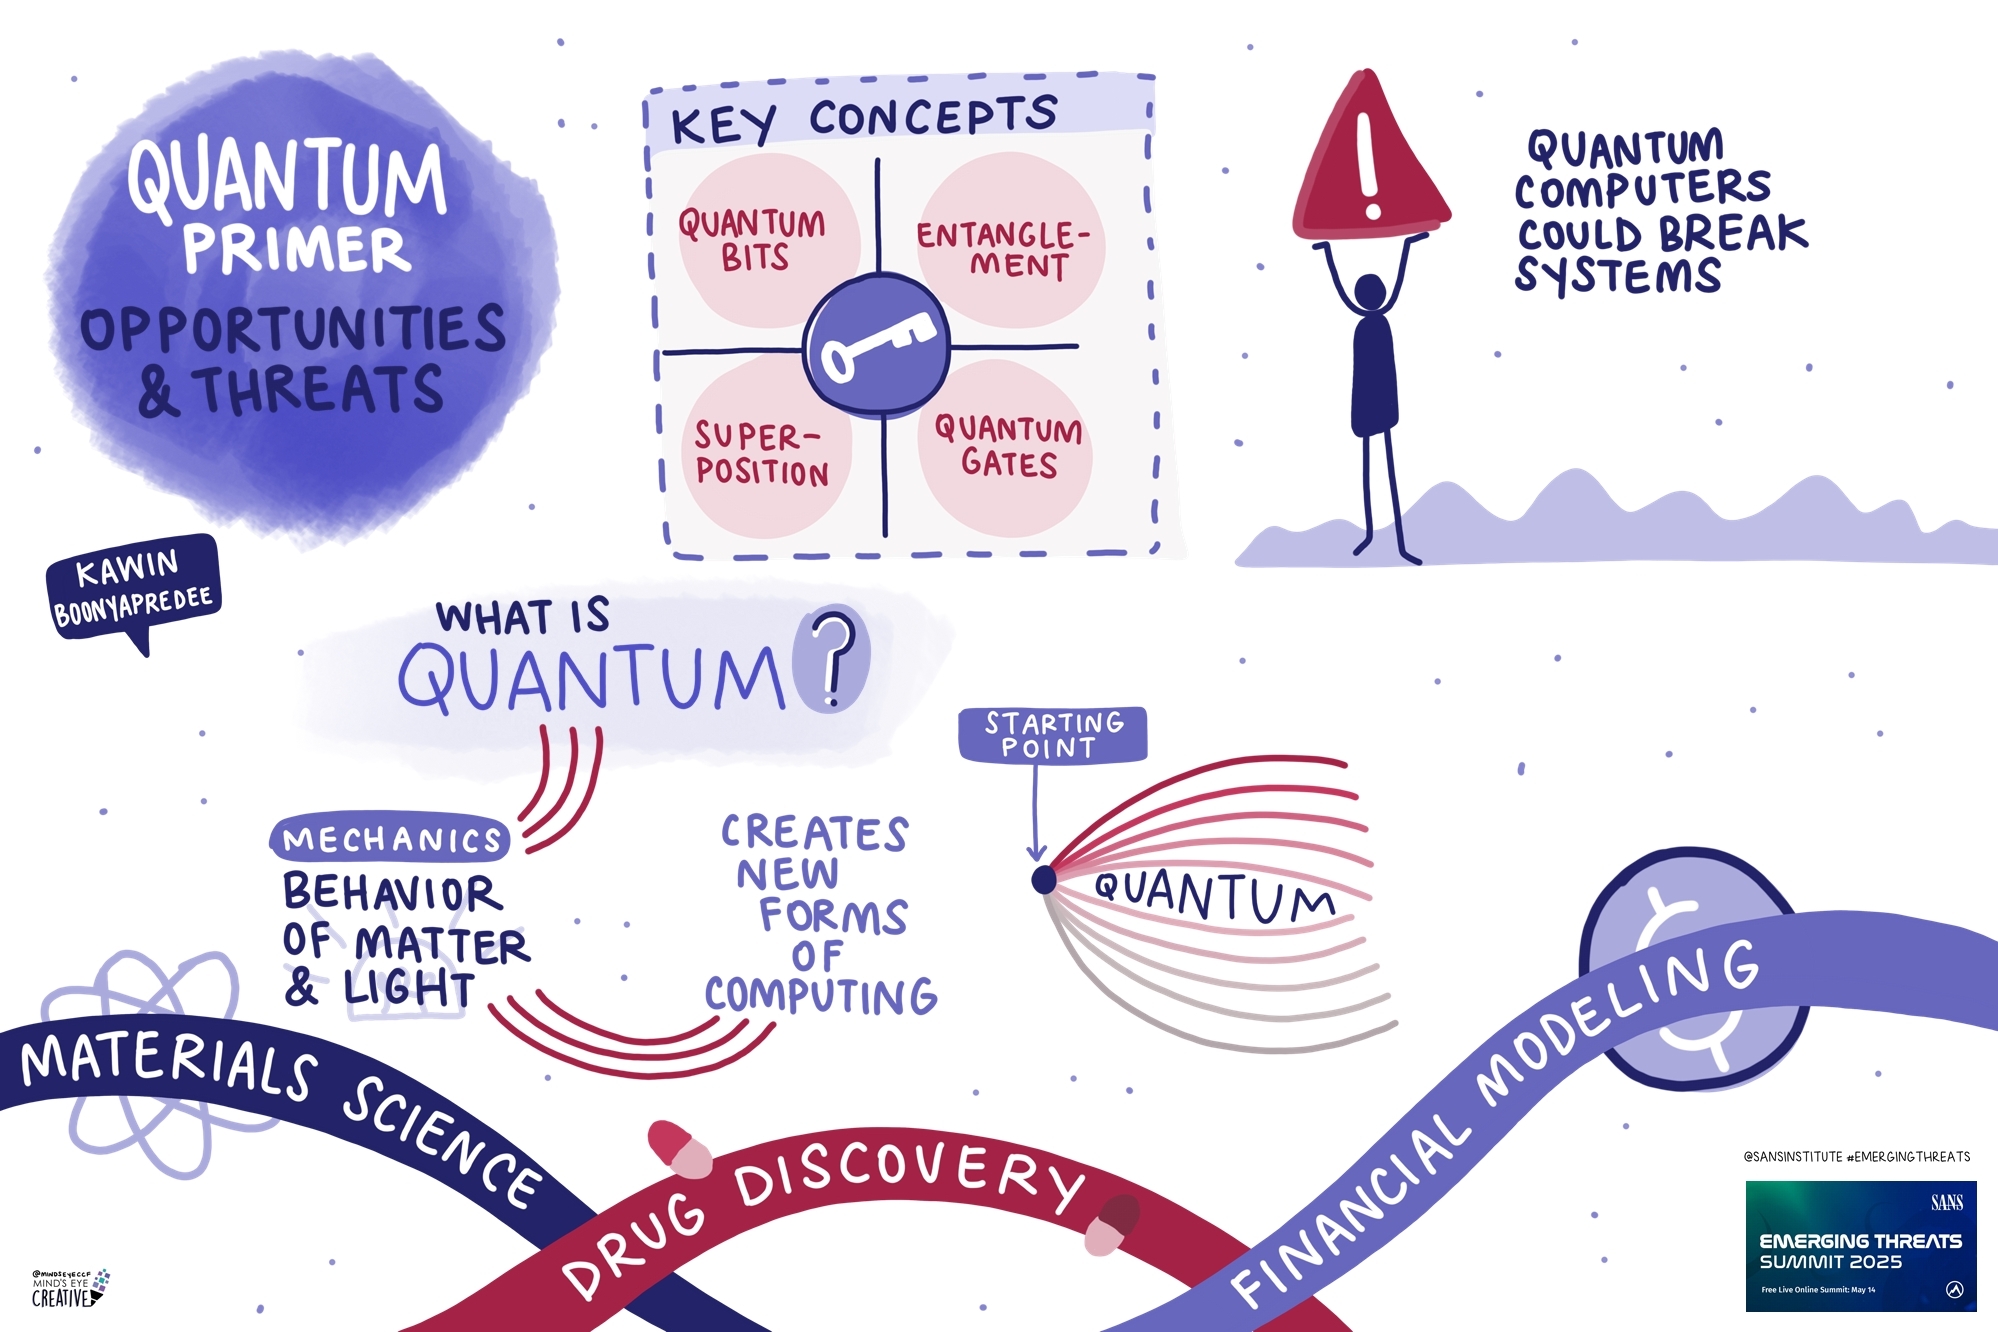 QUANTUM
PRIMER
OPPORTUNITIES
& THREATS
KAWIN
BOONYAPREDEE
KEY CONCEPTS
QUANTUM
BITS
ENTANGLE-
MENT
SUPER-
POSITION
QUANTUM
GATES
QUANTUM
COMPUTERS
COULD BREAK
SYSTEMS
WHAT IS
QUANTUM?
MECHANICS
BEHAVIOR
OF MATTER
& LIGHT
CREATES
NEW
FORMS
OF
COMPUTING
STARTING
POINT
QUANTUM
MATERIALS SCIENCE
DRUG DISCOVERY
FINANCIAL MODELING
@SANSINSTITUTE #EMERGINGTHREATS
SANS
EMERGING THREATS
SUMMIT 2025
Free Live Online Summit: May 14
@MINDSEYECCF
MIND'S EYE
CREATIVE